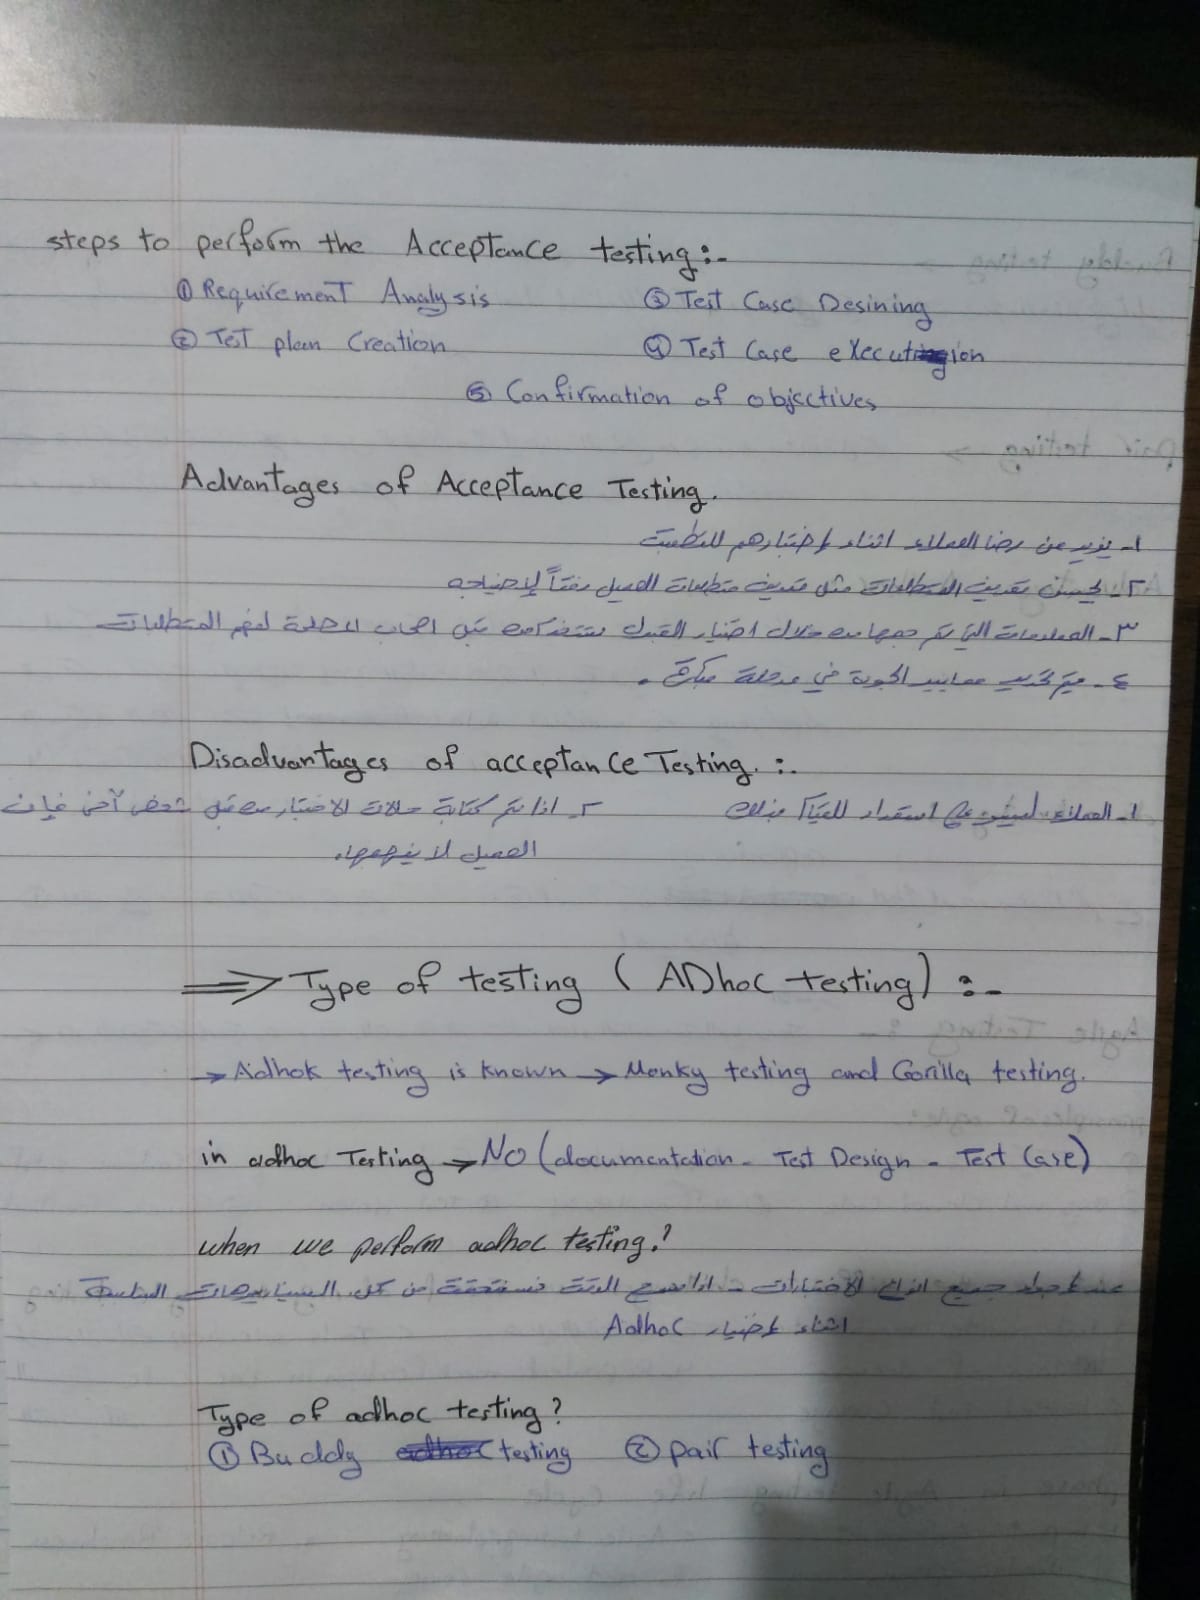 steps to perform the Acceptance testing:-
① Requirement Analysis ③ Test Case Desining
② Test plan Creation ④ Test Case execution
⑤ Confirmation of objectives
Advantages of Acceptance Testing.
١- يزيد من رضا العملاء اثناء إختبارهم للتطبيق
٢- تعريف المتطلبات مثل تعريف متطلبات العميل وفقاً لإحتياجه
٣- المعلومات التي تم جمعها من خلال اختبار القبول من قبل اصحاب المصلحة لفهم المتطلبات
٤- يتم تحديد معايير الجودة في مرحلة مبكرة .
Disadvantages of acceptance Testing. :.
١- العملاء ليسو على استعداد للقيام بذلك ٢- اذا تم كتابة حالات الاختبار من قبل شخص آخر فإن
العميل لا يفهمها.
⇒ Type of testing ( ADhoc testing) :-
→ Adhok testing is known → Monky testing and Gorilla testing.
in adhoc Testing → No (documentation - Test Design - Test Case)
when we perform adhoc testing?
عند إجراء جميع انواع الاختبارات - اذا سمح الوقت من كل السيناريوهات
اثناء إختبار Adhoc
Type of adhoc testing?
① Buddy testing ② pair testing